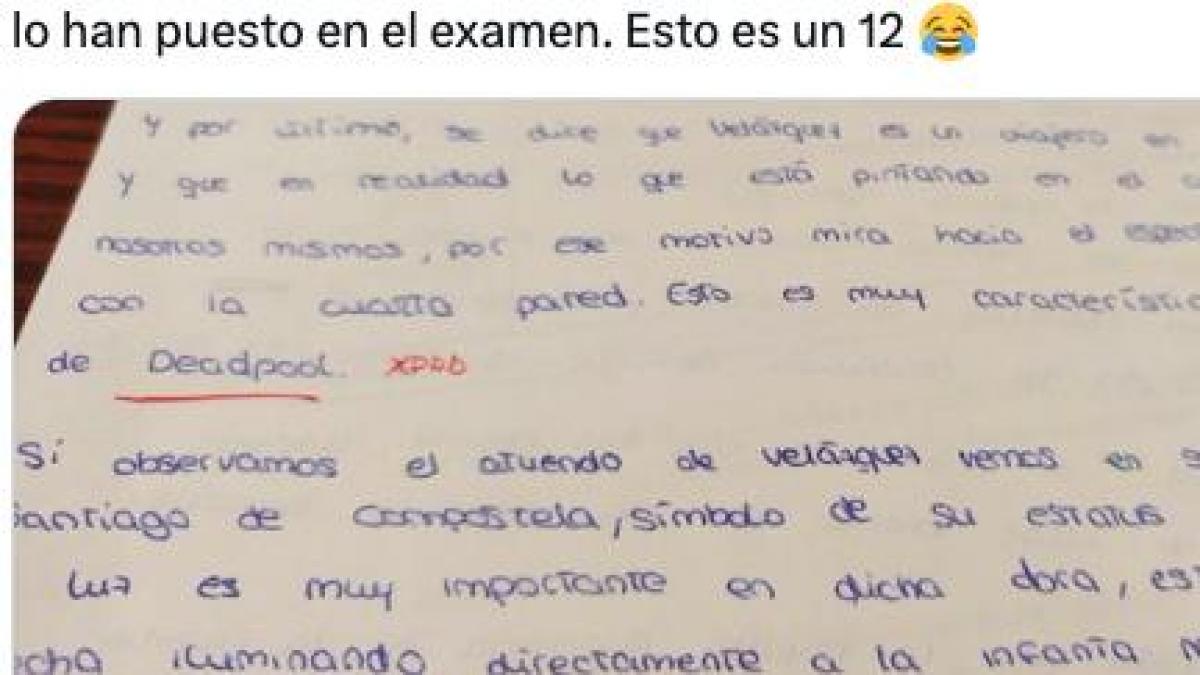 lo han puesto en el examen. Esto es un 12 😂
Y por último, se dice que Velázquez es un viajero en
Y que en realidad lo que está pintando en el
nosotros mismos, por ese motivo mira hacia el espect
con la cuarta pared. Esto es muy característic
de Deadpool. XDDD
Si observamos el atuendo de Velázquez vemos en s
Santiago de Compostela, símbolo de su estatus
Luz es muy importante en dicha obra, es
cha iluminando directamente a la infanta M